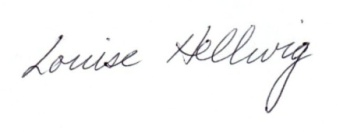 Louise Hellwig